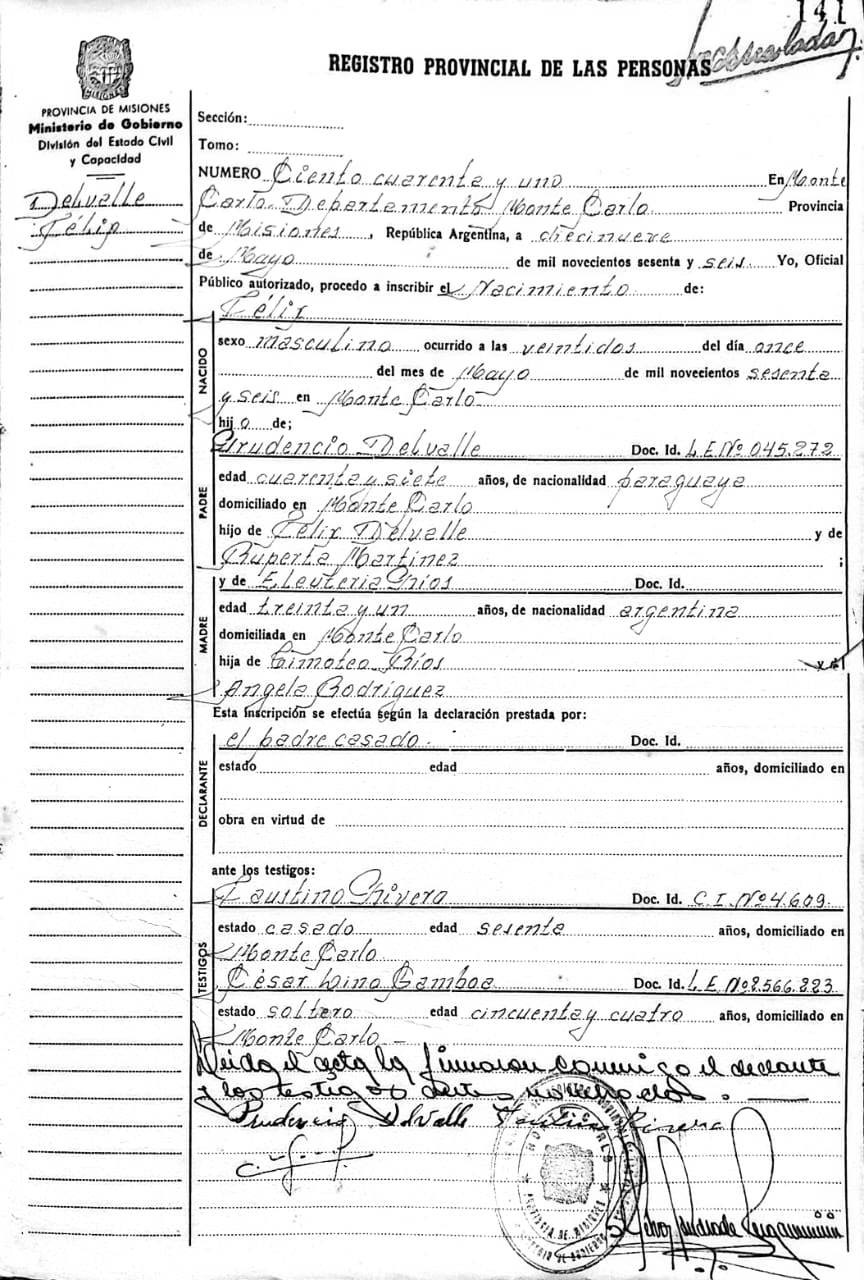 141
REGISTRO PROVINCIAL DE LAS PERSONAS
PROVINCIA DE MISIONES
Ministerio de Gobierno
División del Estado Civil
y Capacidad
Delvalle
Félix
Sección:
Tomo:
NUMERO Ciento cuarenta y uno En Monte
Carlo Departamento Monte Carlo Provincia
de Misiones, República Argentina, a diecinueve
de Mayo de mil novecientos sesenta y seis. Yo, Oficial
Público autorizado, procedo a inscribir el Nacimiento de:
NACIDO
Félix
sexo masculino ocurrido a las veintidos del día once
del mes de Mayo de mil novecientos sesenta
y seis en Monte Carlo
hijo de;
PADRE
Prudencio Delvalle Doc. Id. L.E.Nº 045.272
edad cuarenta y siete años, de nacionalidad paraguaya
domiciliado en Monte Carlo
hijo de Félix Delvalle y de
Ruperta Martinez ;
MADRE
y de Eleuteria Rios Doc. Id.
edad treinta y un años, de nacionalidad argentina
domiciliada en Monte Carlo
hija de Timoteo Rios y de
Angela Rodriguez
Esta inscripción se efectúa según la declaración prestada por:
DECLARANTE
el padre casado. Doc. Id.
estado edad años, domiciliado en
obra en virtud de
ante los testigos:
TESTIGOS
Faustino Rivero Doc. Id. C.I.Nº4.609.
estado casado edad sesenta años, domiciliado en
Monte Carlo
César Lino Gamboa Doc. Id. L.E.Nº2.566.223
estado soltero edad cincuenta y cuatro años, domiciliado en
Monte Carlo –
Leida el acta la firmaron conmigo el declarante
y los testigos
Prudencio Delvalle Faustino Rivero
MONTE CARLO
PROVINCIA DE MISIONES